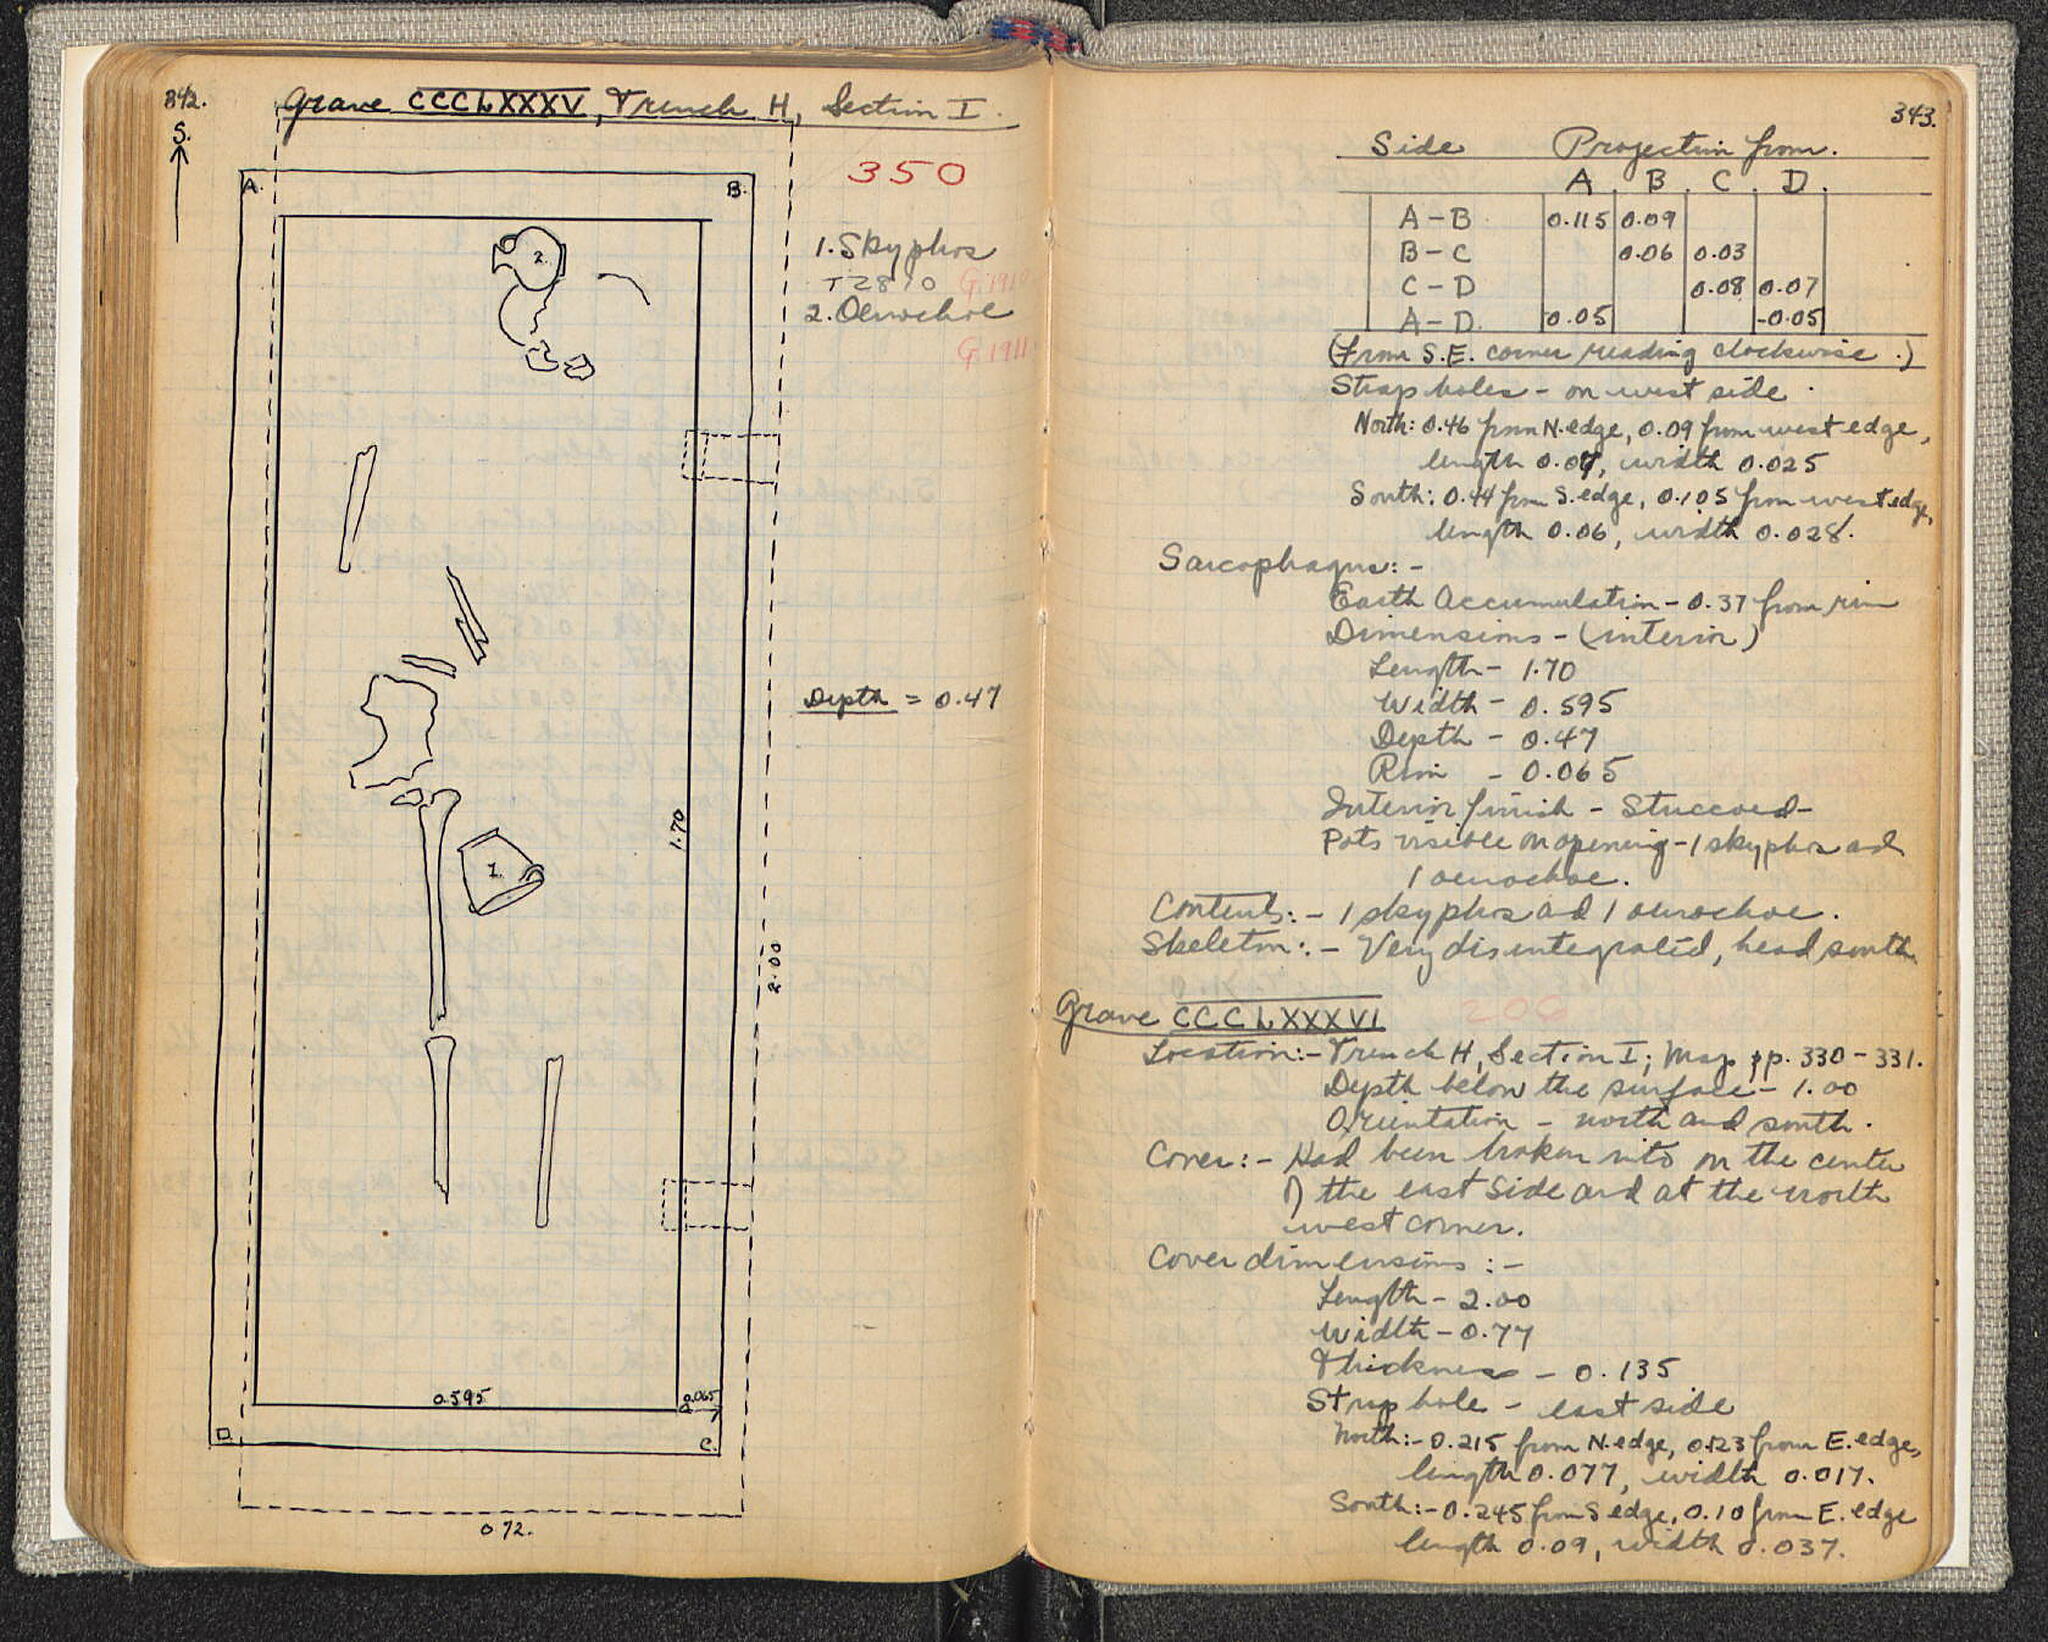 342.
Grave CCCLXXXV, Trench H, Section I.
S.
350
A. B.
1. Skyphos
T2810 G. 1910
2. Oenochoe
G. 1911
2.
Depth = 0.47
1.70
1.
2.00
0.595 0.065
D. C.
0.72.
343.
Side Projection from.
A B C D.
A-B 0.115 0.09
B-C 0.06 0.03
C-D 0.08 0.07
A-D. 0.05 -0.05
(From S.E. corner reading clockwise.)
Strap holes - on west side.
North: 0.46 from N. edge, 0.09 from west edge,
length 0.07, width 0.025
South: 0.44 from S. edge, 0.105 from west edge,
length 0.06, width 0.028.
Sarcophagus: -
Earth Accumulation - 0.37 from rim
Dimensions - (interior)
Length - 1.70
Width - 0.595
Depth - 0.47
Rim - 0.065
Interior finish - Stuccoed -
Pots visible on opening - 1 skyphos and
1 oenochoe.
Contents: - 1 skyphos and 1 oenochoe.
Skeleton: - Very disintegrated, head south.
Grave CCCLXXXVI 206
Location: - Trench H, Section I; Map pp. 330-331.
Depth below the surface - 1.00
Orientation - north and south.
Cover: - Had been broken into on the center
of the east side and at the north
west corner.
Cover dimensions: -
Length - 2.00
Width - 0.77
Thickness - 0.135
Strap hole - east side
North: - 0.215 from N. edge, 0.123 from E. edge,
length 0.077, width 0.017.
South: - 0.245 from S edge, 0.10 from E. edge
length 0.09, width 0.037.